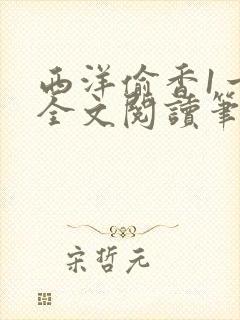 西洋偷香1一
全文閱讀筆
宋哲元